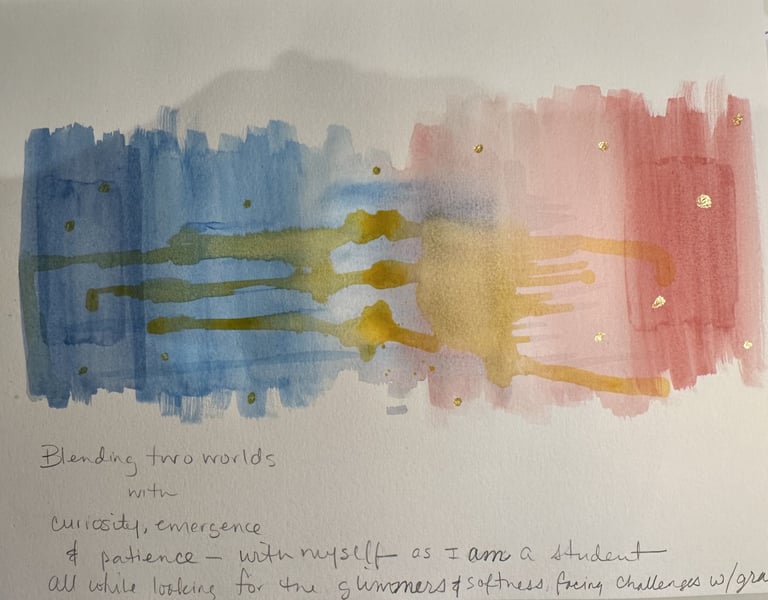 Blending two worlds
with
curiosity, emergence
& patience – with myself as I am a student
all while looking for the glimmers & softness, facing challenges w/gra